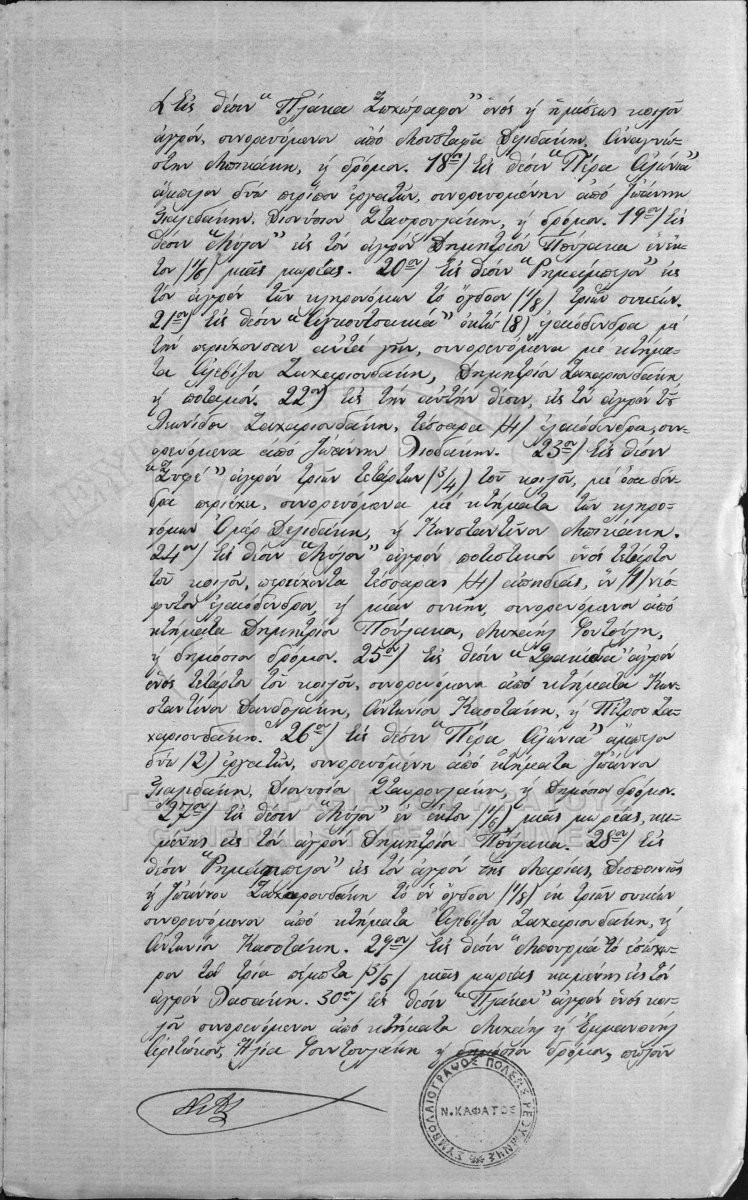 Εἰς θέσιν "Πλάκα Ζωχώραφον" ἑνὸς ἡμίσεως κοιλοῦ
ἀγρόν, συνορευόμενον ἀπὸ Μουσταφᾶ Δελιδάκη, Ἀναγνώ-
στην Μπικάκη, ἡ δρόμον. 18ον) Εἰς θέσιν "Πέρα Ἀλώνια"
ἄμπελον δύο περίπου ἐργατῶν, συνορευομένην ἀπὸ Ἰωάννην
Διονύσιον Σταυρουλάκην, ἡ δρόμον. 19ον) Εἰς
θέσιν "Μύλον" εἰς τὸν ἀγρὸν Δημητρίου Πούλακα ἓν ἕκ-
τον (1/6) μιᾶς μωρέας. 20ον) Εἰς θέσιν "Ρημάμπελον" εἰς
τὸν ἀγρὸν τῶν κληρονόμων τὸ ὄγδοον (1/8) τριῶν συκεῶν.
21ον) Εἰς θέσιν ὀκτὼ (8) ἐλαιόδενδρα μὲ
τὴν περιέχουσαν αὐτὰ γῆν, συνορευόμενα μὲ κτήμα-
τα Ἀλεβίζου Ζαχαριουδάκη, Δημητρίου Ζαχαριουδάκη
ἡ ποταμόν. 22ον) Εἰς τὴν αὐτὴν θέσιν, εἰς τὸν ἀγρὸν τοῦ
Λεωνίδου Ζαχαριουδάκη, τέσσαρα (4) ἐλαιόδενδρα, συν-
ορευόμενα ἀπὸ Ἰωάννην Λιοδάκην. 23ον) Εἰς θέσιν
ἀγρὸν τριῶν τετάρτων (3/4) τοῦ κοιλοῦ, μὲ ὅσα δέν-
δρα περιέχει, συνορευόμενον μὲ κτήματα τῶν κληρο-
νόμων Ὀμὲρ Δελιδάκη, ἡ Κωνσταντίνου Μπικάκη.
24ον) Εἰς θέσιν "Μύλον" ἀγρὸν ποτιστικὸν ἑνὸς τετάρτου
τοῦ κοιλοῦ, περιέχοντα τέσσαρας (4) ἀπηδέας, ἓν (1) νεό-
φυτον ἐλαιόδενδρον, ἡ μίαν συκῆν, συνορευόμενον ἀπὸ
κτήματα Δημητρίου Πούλακα, Μιχαὴλ Φουντούλη,
ἡ δημόσιον δρόμον. 25ον) Εἰς θέσιν ἀγρὸν
ἑνὸς τετάρτου τοῦ κοιλοῦ, συνορευόμενον ἀπὸ κτήματα Κων-
σταντίνου Δανδολάκη, Ἀντωνίου Καστάκη, ἡ Πέτρου Ζα-
χαριουδάκη. 26ον) Εἰς θέσιν "Πέρα Ἀλώνια" ἄμπελον
δύο (2) ἐργατῶν, συνορευομένην ἀπὸ κτήματα Ἰωάννου
Διονυσίου Σταυρουλάκη, ἡ Δημόσιον δρόμον.
27ον) Εἰς θέσιν "Μύλον" ἓν ἕκτον (1/6) μιᾶς μωρέας, κει-
μένης εἰς τὸν ἀγρὸν Δημητρίου Πούλακα. 28ον) Εἰς
θέσιν "Ρημάμπελον" εἰς τὸν ἀγρὸν τῆς Μαρίας, Δεσποινῆς
ἡ Ἰωάννου Ζαχαριουδάκη τὸ ἓν ὄγδοον (1/8) ἐκ τριῶν συκεῶν
συνορευόμενον ἀπὸ κτήματα Ἀλεβίζου Ζαχαριουδάκη, ἡ
Ἀντωνίου Καστάκη. 29ον) Εἰς θέσιν ἐσώχω-
ρον τὰ τρία πέμπτα (3/5) μιᾶς μωρέας κειμένης εἰς τὸν
ἀγρὸν Λασάκη. 30ον) Εἰς θέσιν "Πλάκα" ἀγρὸν ἑνὸς κοι-
λοῦ συνορευόμενον ἀπὸ κτήματα Μιχαὴλ ἡ Ἐμμανουὴλ
Ἠλία Φουντουλάκη ἡ δημόσιον δρόμον,
ΣΥΜΒΟΛΑΙΟΓΡΑΦΟΣ ΠΟΛΕΩΣ ΡΕΘΥΜΝΗΣ
Ν. ΚΑΦΑΤΟΣ
ΓΕΝΙΚΑ ΑΡΧΕΙΑ ΤΟΥ ΚΡΑΤΟΥΣ
GENERAL STATE ARCHIVES